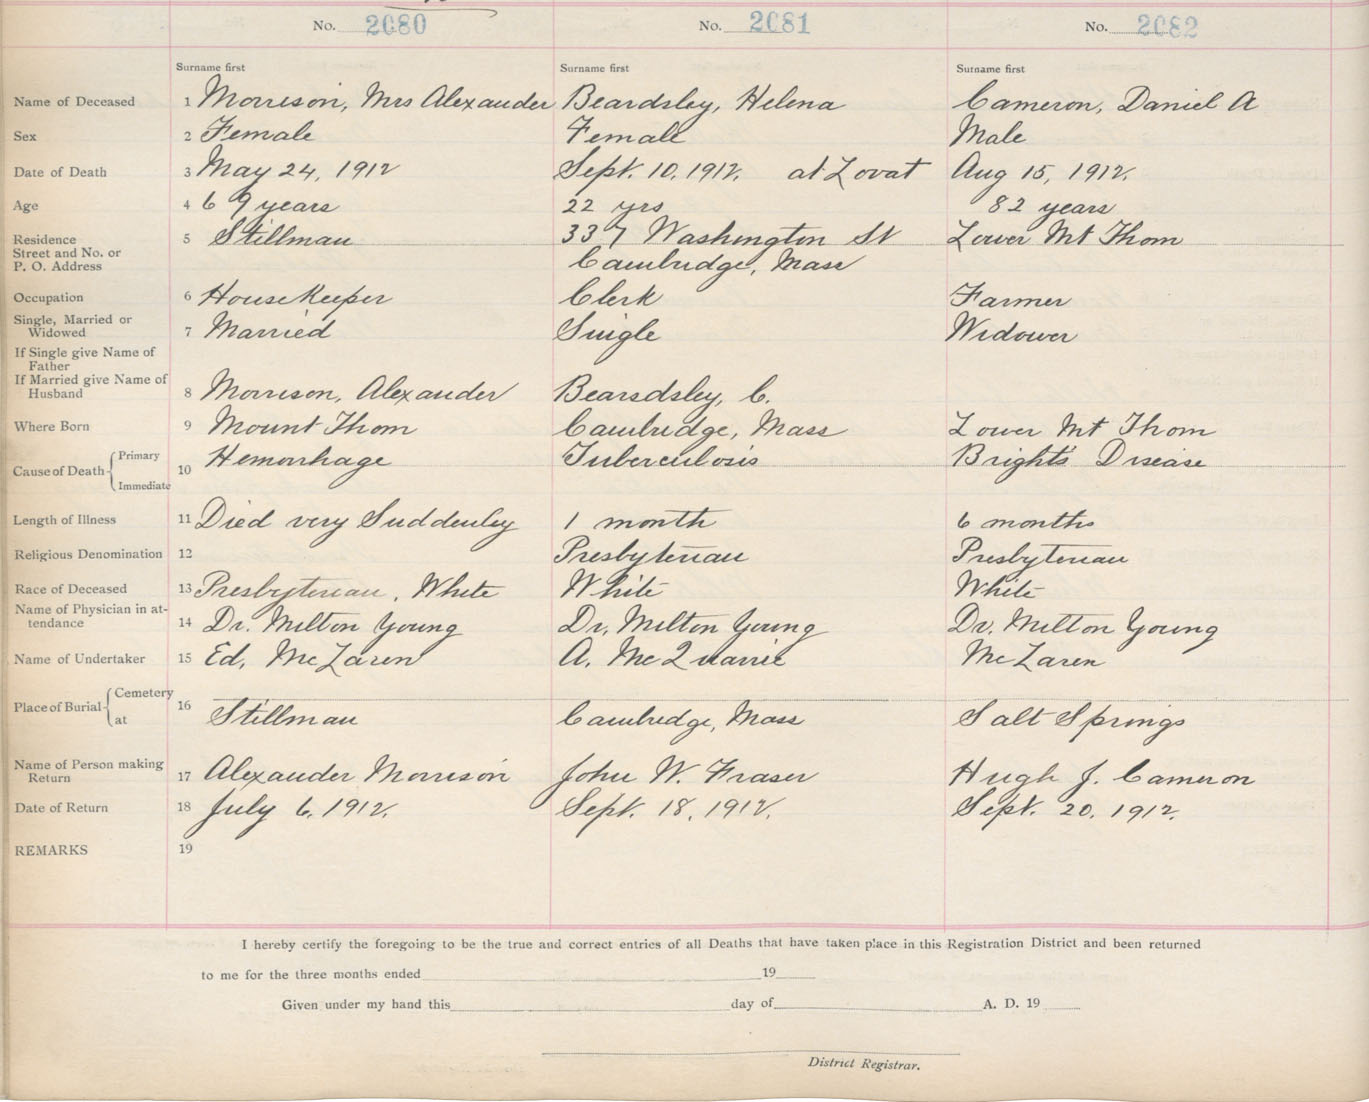 No. 2080 No. 2081 No. 2082
Surname first Surname first Surname first
Name of Deceased 1 Morrison, Mrs Alexander Beardsley, Helena Cameron, Daniel A
Sex 2 Female Female Male
Date of Death 3 May 24, 1912 Sept. 10, 1912. at Lovat Aug 15, 1912.
Age 4 69 years 22 yrs 82 years
Residence 5 Stillman 337 Washington St Lower Mt Thom
Street and No. or
P. O. Address Cambridge, Mass
Occupation 6 Housekeeper Clerk Farmer
Single, Married or
Widowed 7 Married Single Widower
If Single give Name of
Father
If Married give Name of
Husband 8 Morrison, Alexander Bearsdsley, C.
Where Born 9 Mount Thom Cambridge, Mass Lower Mt Thom
Cause of Death Primary 10 Hemorrhage Tuberculosis Brights Disease
Immediate
Length of Illness 11 Died very Suddenley 1 month 6 months
Religious Denomination 12 Presbyterian Presbyterian
Race of Deceased 13 Presbyterian, White White White
Name of Physician in at-
tendance 14 Dr. Milton Young Dr. Milton Young Dr. Milton Young
Name of Undertaker 15 Ed. McLaren A. McQuarrie McLaren
Place of Burial Cemetery 16
at Stillman Cambridge, Mass Salt Springs
Name of Person making
Return 17 Alexander Morrison John W. Fraser Hugh J. Cameron
Date of Return 18 July 6, 1912. Sept. 18, 1912. Sept. 20, 1912.
REMARKS 19
I hereby certify the foregoing to be the true and correct entries of all Deaths that have taken place in this Registration District and been returned
to me for the three months ended 19
Given under my hand this day of A. D. 19
District Registrar.